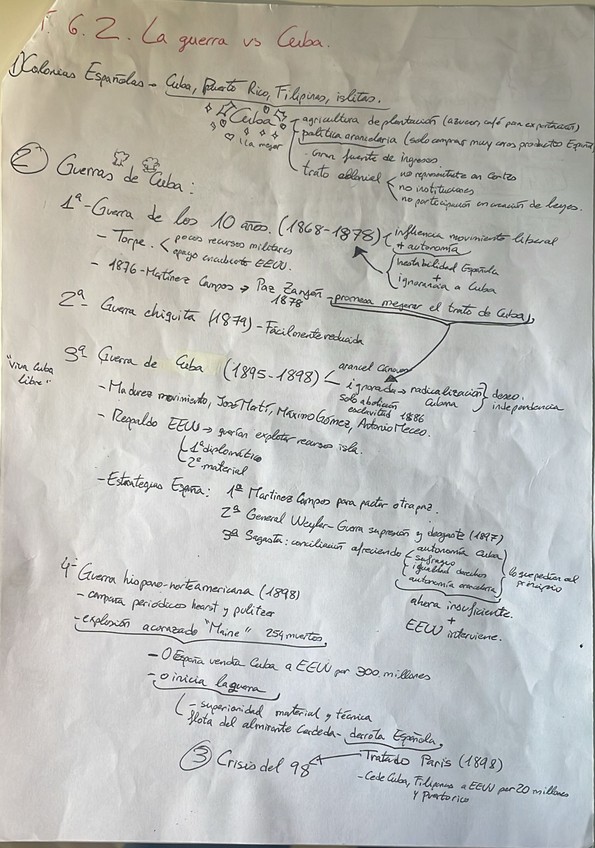 T. 6.2. La guerra vs Cuba.
1) Colonias Españolas → Cuba, Puerto Rico, Filipinas, islitas.
Cuba
¡La mejor
agricultura de plantación (azucar, café para exportación)
política arancelaria (solo comprar muy caros productos España
Gran fuente de ingresos.
trato colonial
no representante en Cortes
no instituciones
no participación en creación de leyes.
2 Guerras de Cuba:
1ª - Guerra de los 10 años. (1868-1878)
influencia movimiento liberal
+ autonomía
inestabilidad Española
+
ignorancia a Cuba
- Torpe. < pocos recursos militares
apoyo encubierto EEUU.
- 1876 - Martínez Campos → Paz Zanjón - promesa mejorar el trato de Cuba
1878
2ª Guerra chiquita (1879) - Fácilmente reducida
"Viva Cuba
libre"
3ª Guerra de Cuba (1895-1898)
arancel Cánovas
ignorada → radicalización
Cubana
deseo
independencia
solo abolición
esclavitud 1886
- Madurez movimiento, José Martí, Máximo Gómez, Antonio Maceo.
- Respaldo EEUU → querían explotar recursos isla.
1º diplomático
2º material
- Estrategias España: 1ª Martinez Campos para pactar otra paz.
2ª General Weyler - Guerra supresión y desgaste (1897)
3ª Sagasta: conciliación ofreciendo
autonomía Cuba
sufragio
igualdad derechos
autonomía arancelaria
lo que pedían al
principio
ahora insuficiente.
+
EEUU interviene.
4ª Guerra hispano-norteamericana (1898)
- campaña periódicos hearst y pulitzer
- explosión acorazado "Maine" 254 muertos
- O España vendía Cuba a EEUU por 300 millones
- o inicia la guerra
- superioridad material y técnica
flota del almirante - derrota Española.
3 Crisis del 98
Tratado París (1898)
- Cede Cuba, Filipinas a EEUU por 20 millones
y puerto rico